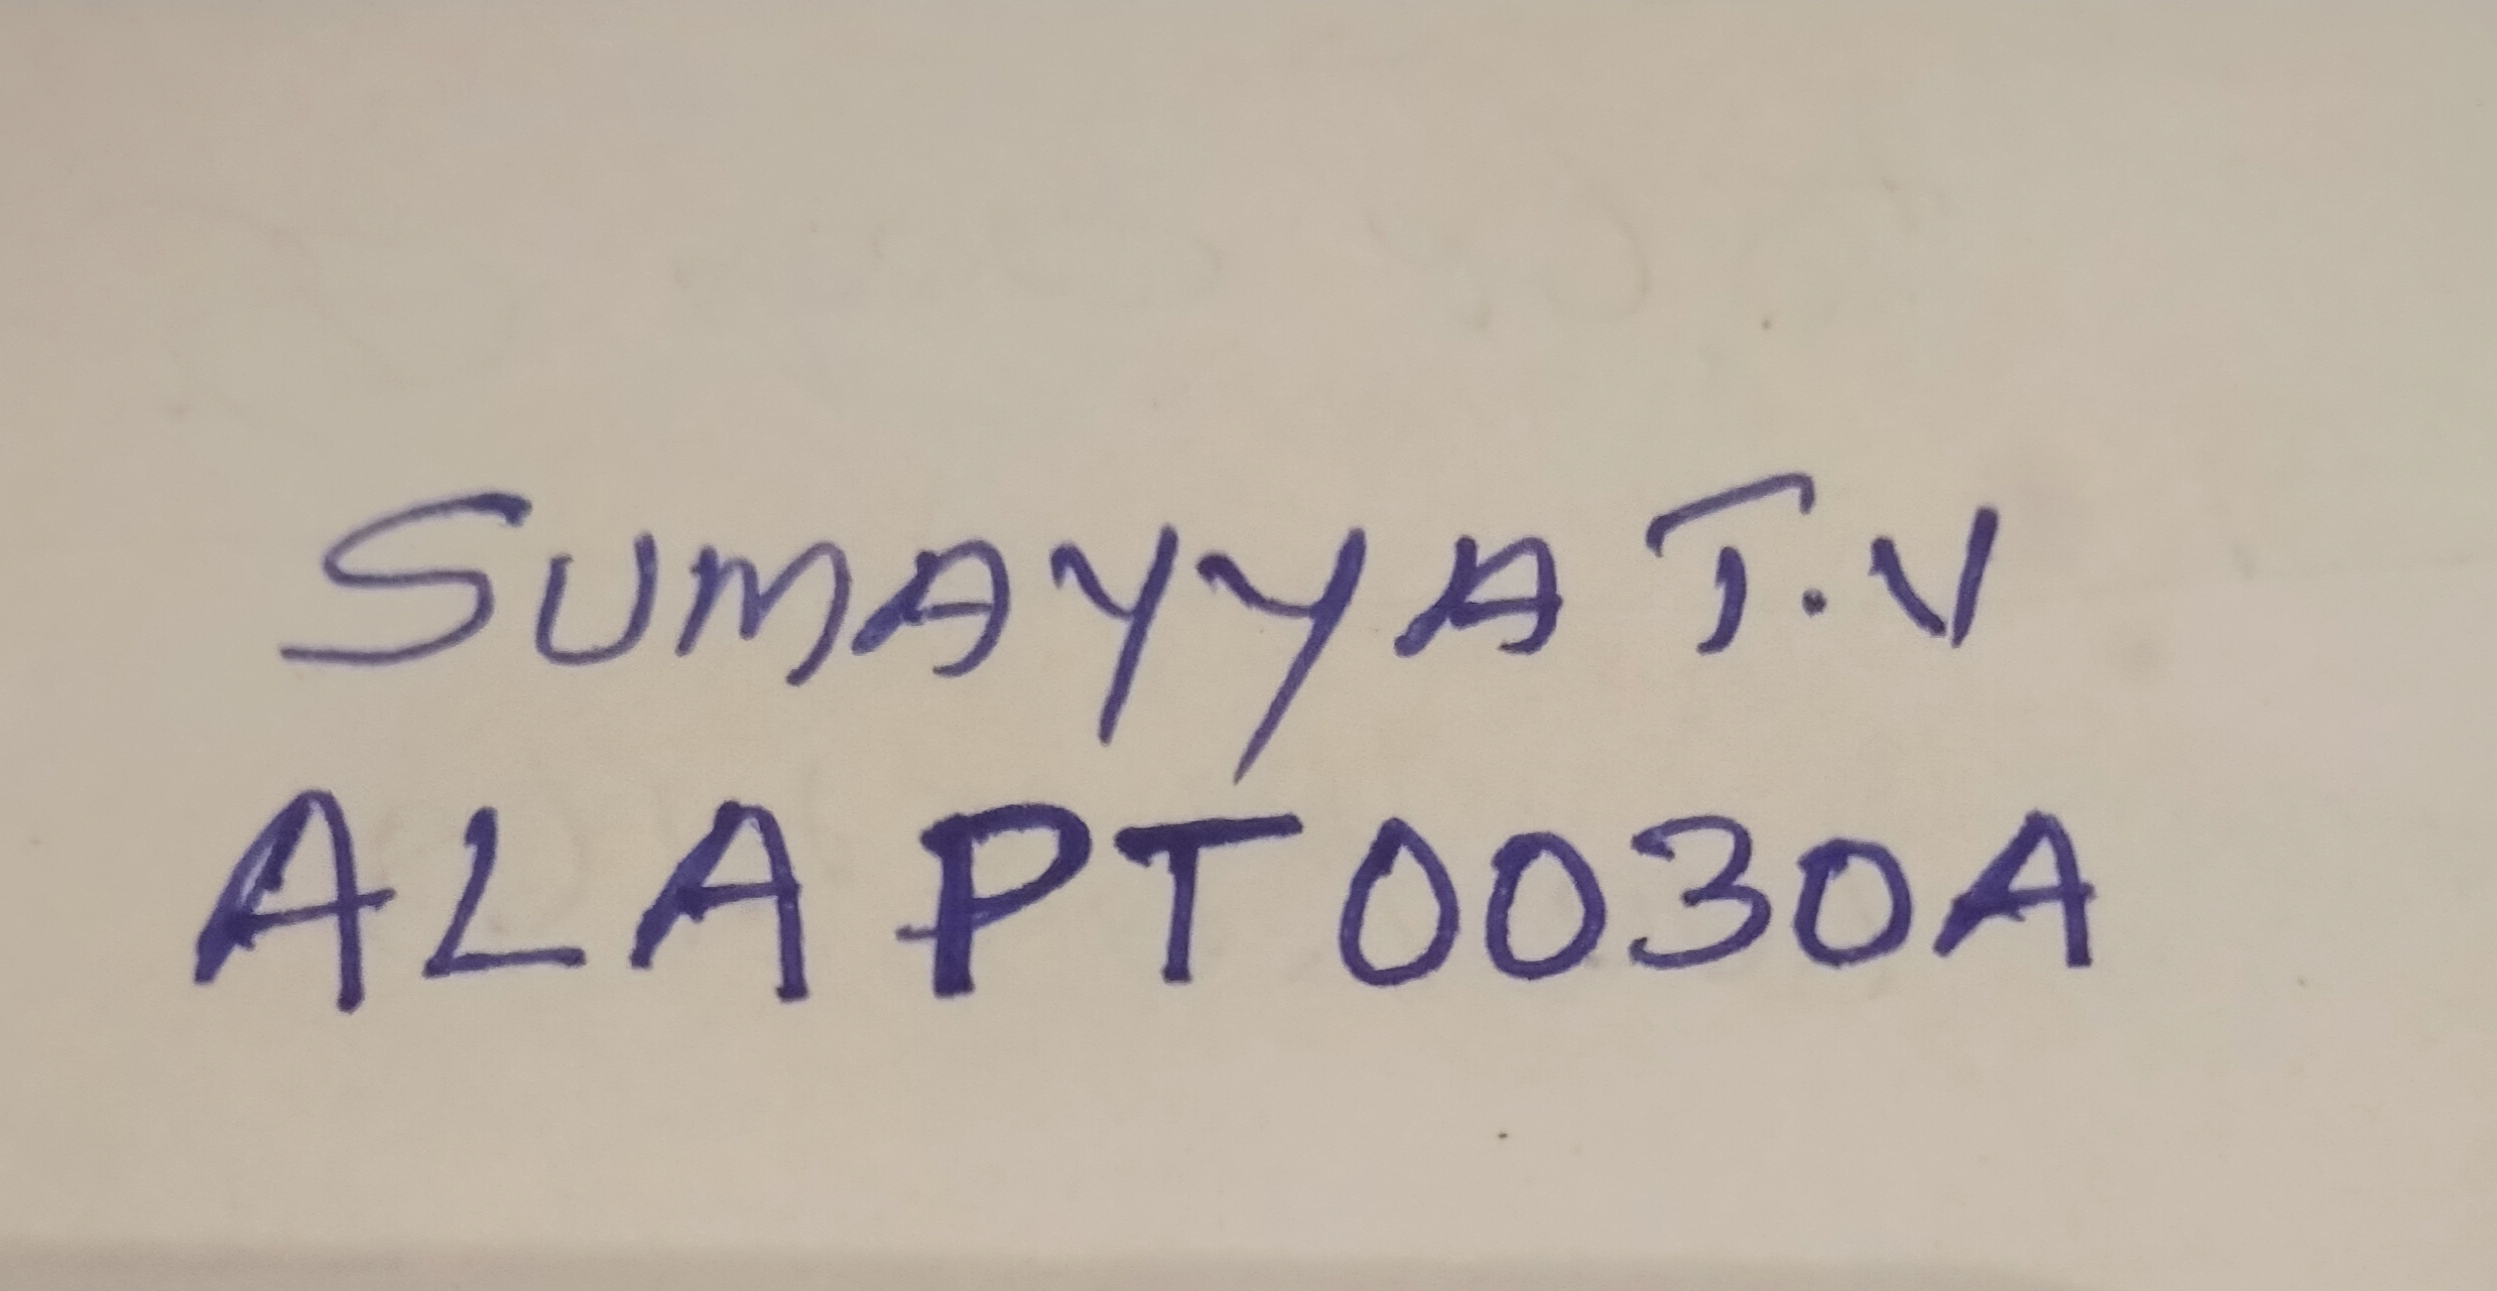 SUMAYYA T.V
ALAPT0030A